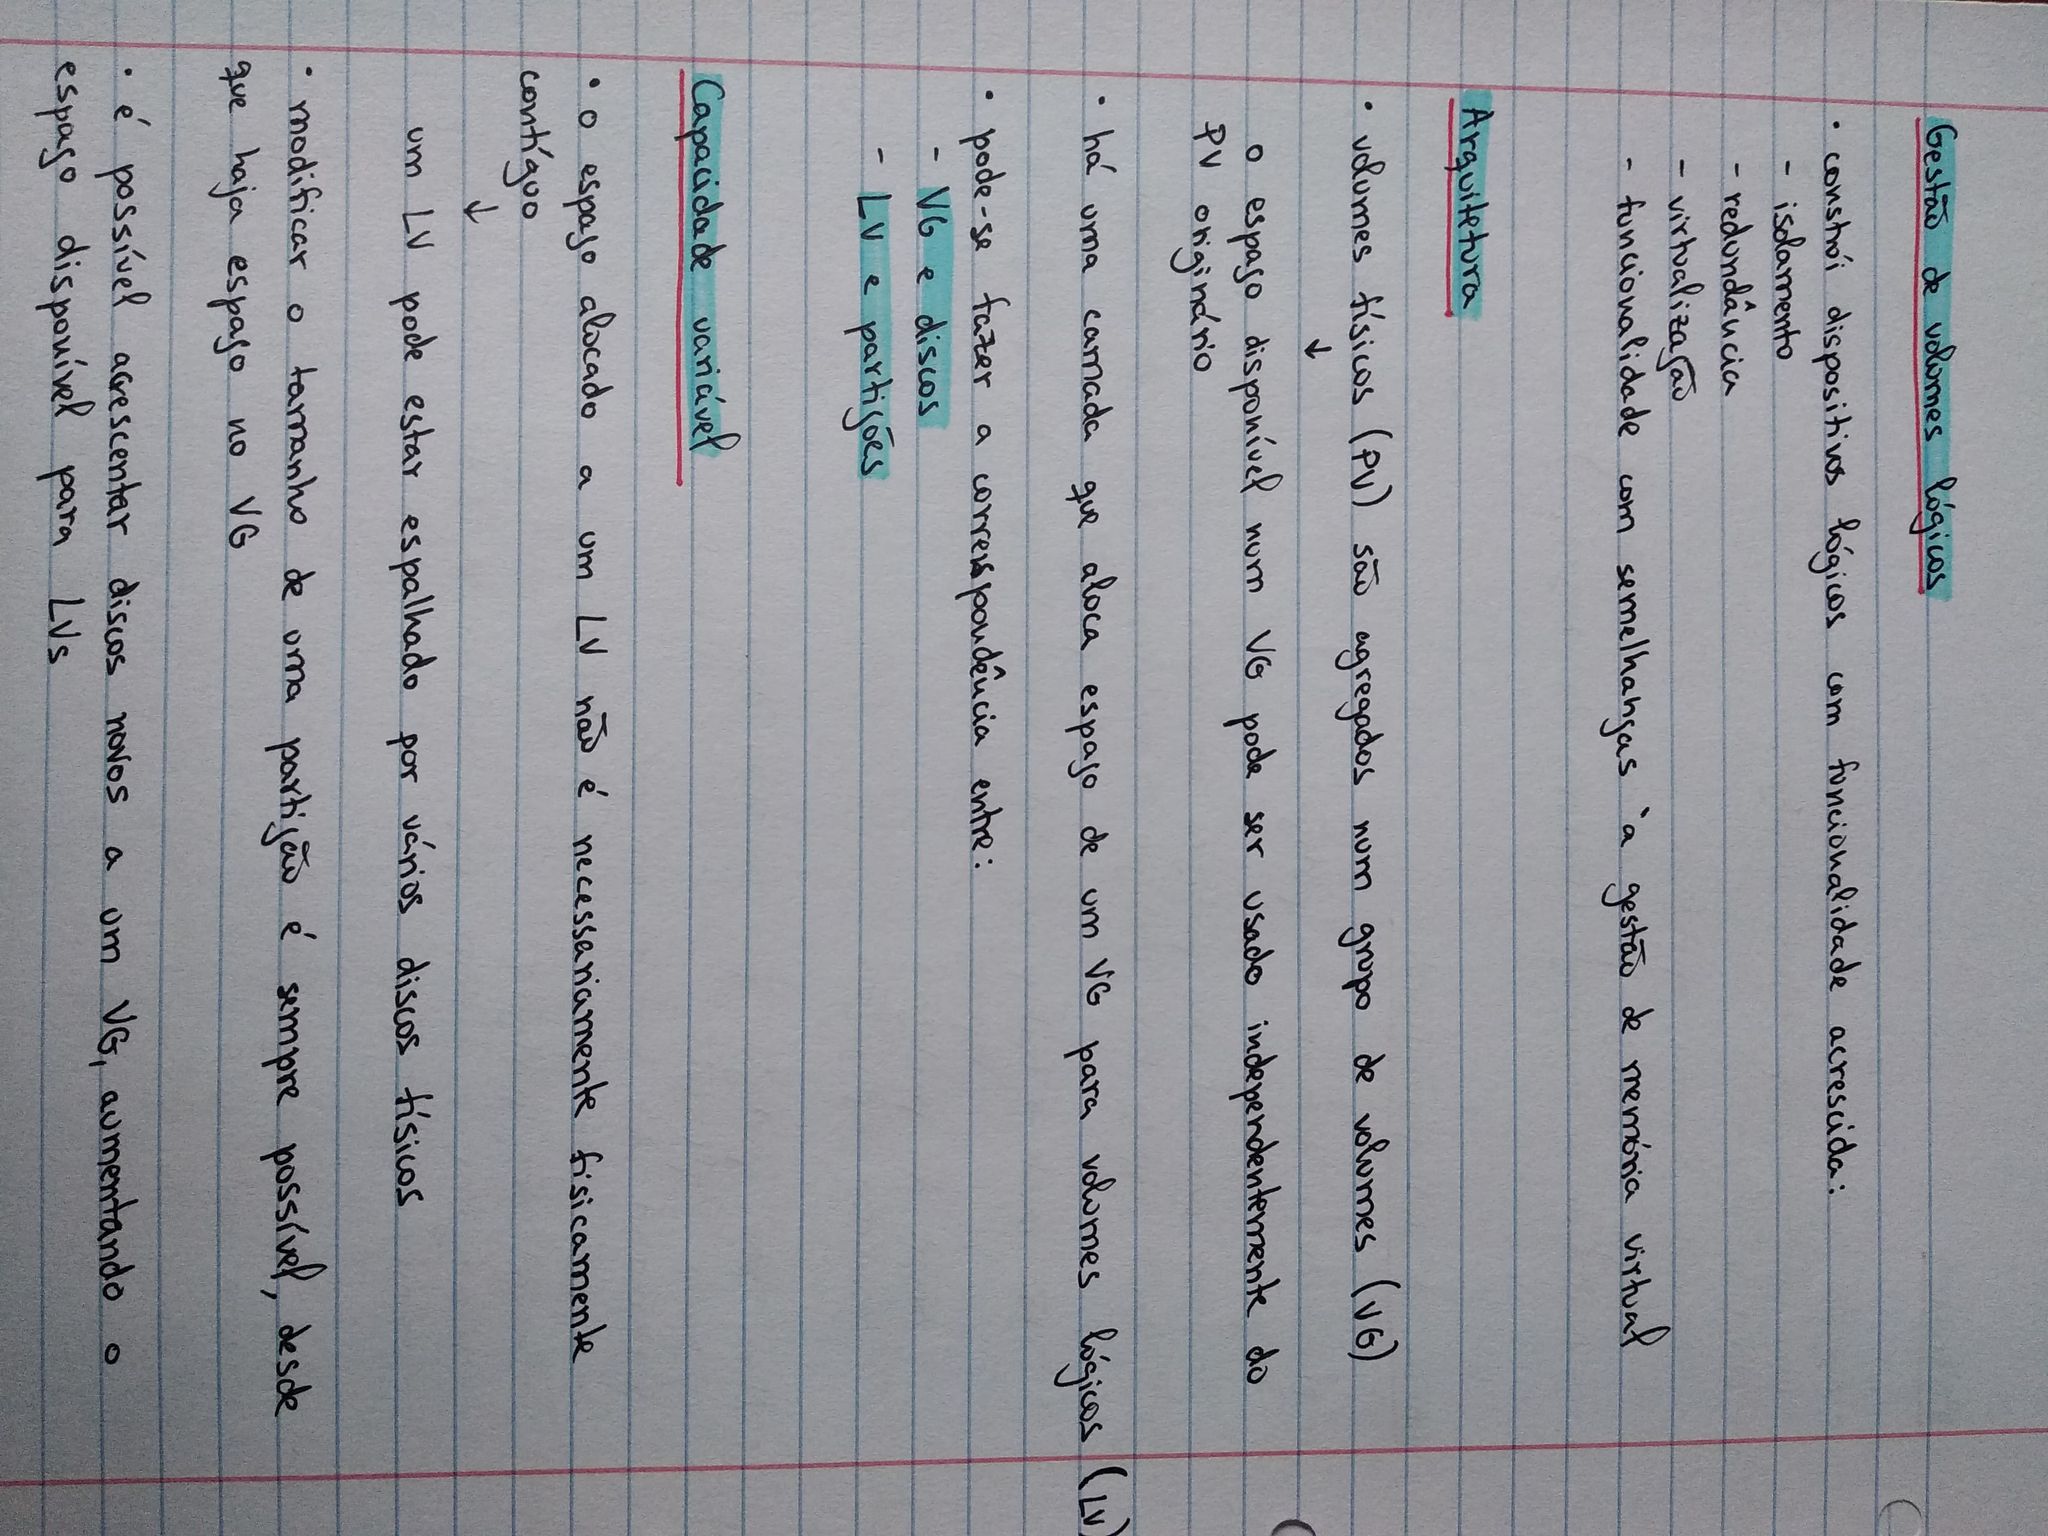 Gestão de volumes lógicos
• constrói dispositivos lógicos com funcionalidade acrescida:
- isolamento
- redundância
- virtualização
- funcionalidade com semelhanças à gestão de memória virtual
Arquitetura
• volumes físicos (PV) são agregados num grupo de volumes (VG)
↓
o espaço disponível num VG pode ser usado independentemente do
PV originário
• há uma camada que aloca espaço de um VG para volumes lógicos (LV)
• pode-se fazer a correspondência entre:
- VG e discos
- LV e partições
Capacidade variável
• o espaço alocado a um LV não é necessariamente fisicamente
contíguo
↓
um LV pode estar espalhado por vários discos físicos
• modificar o tamanho de uma partição é sempre possível, desde
que haja espaço no VG
• é possível acrescentar discos novos a um VG, aumentando o
espaço disponível para LVs